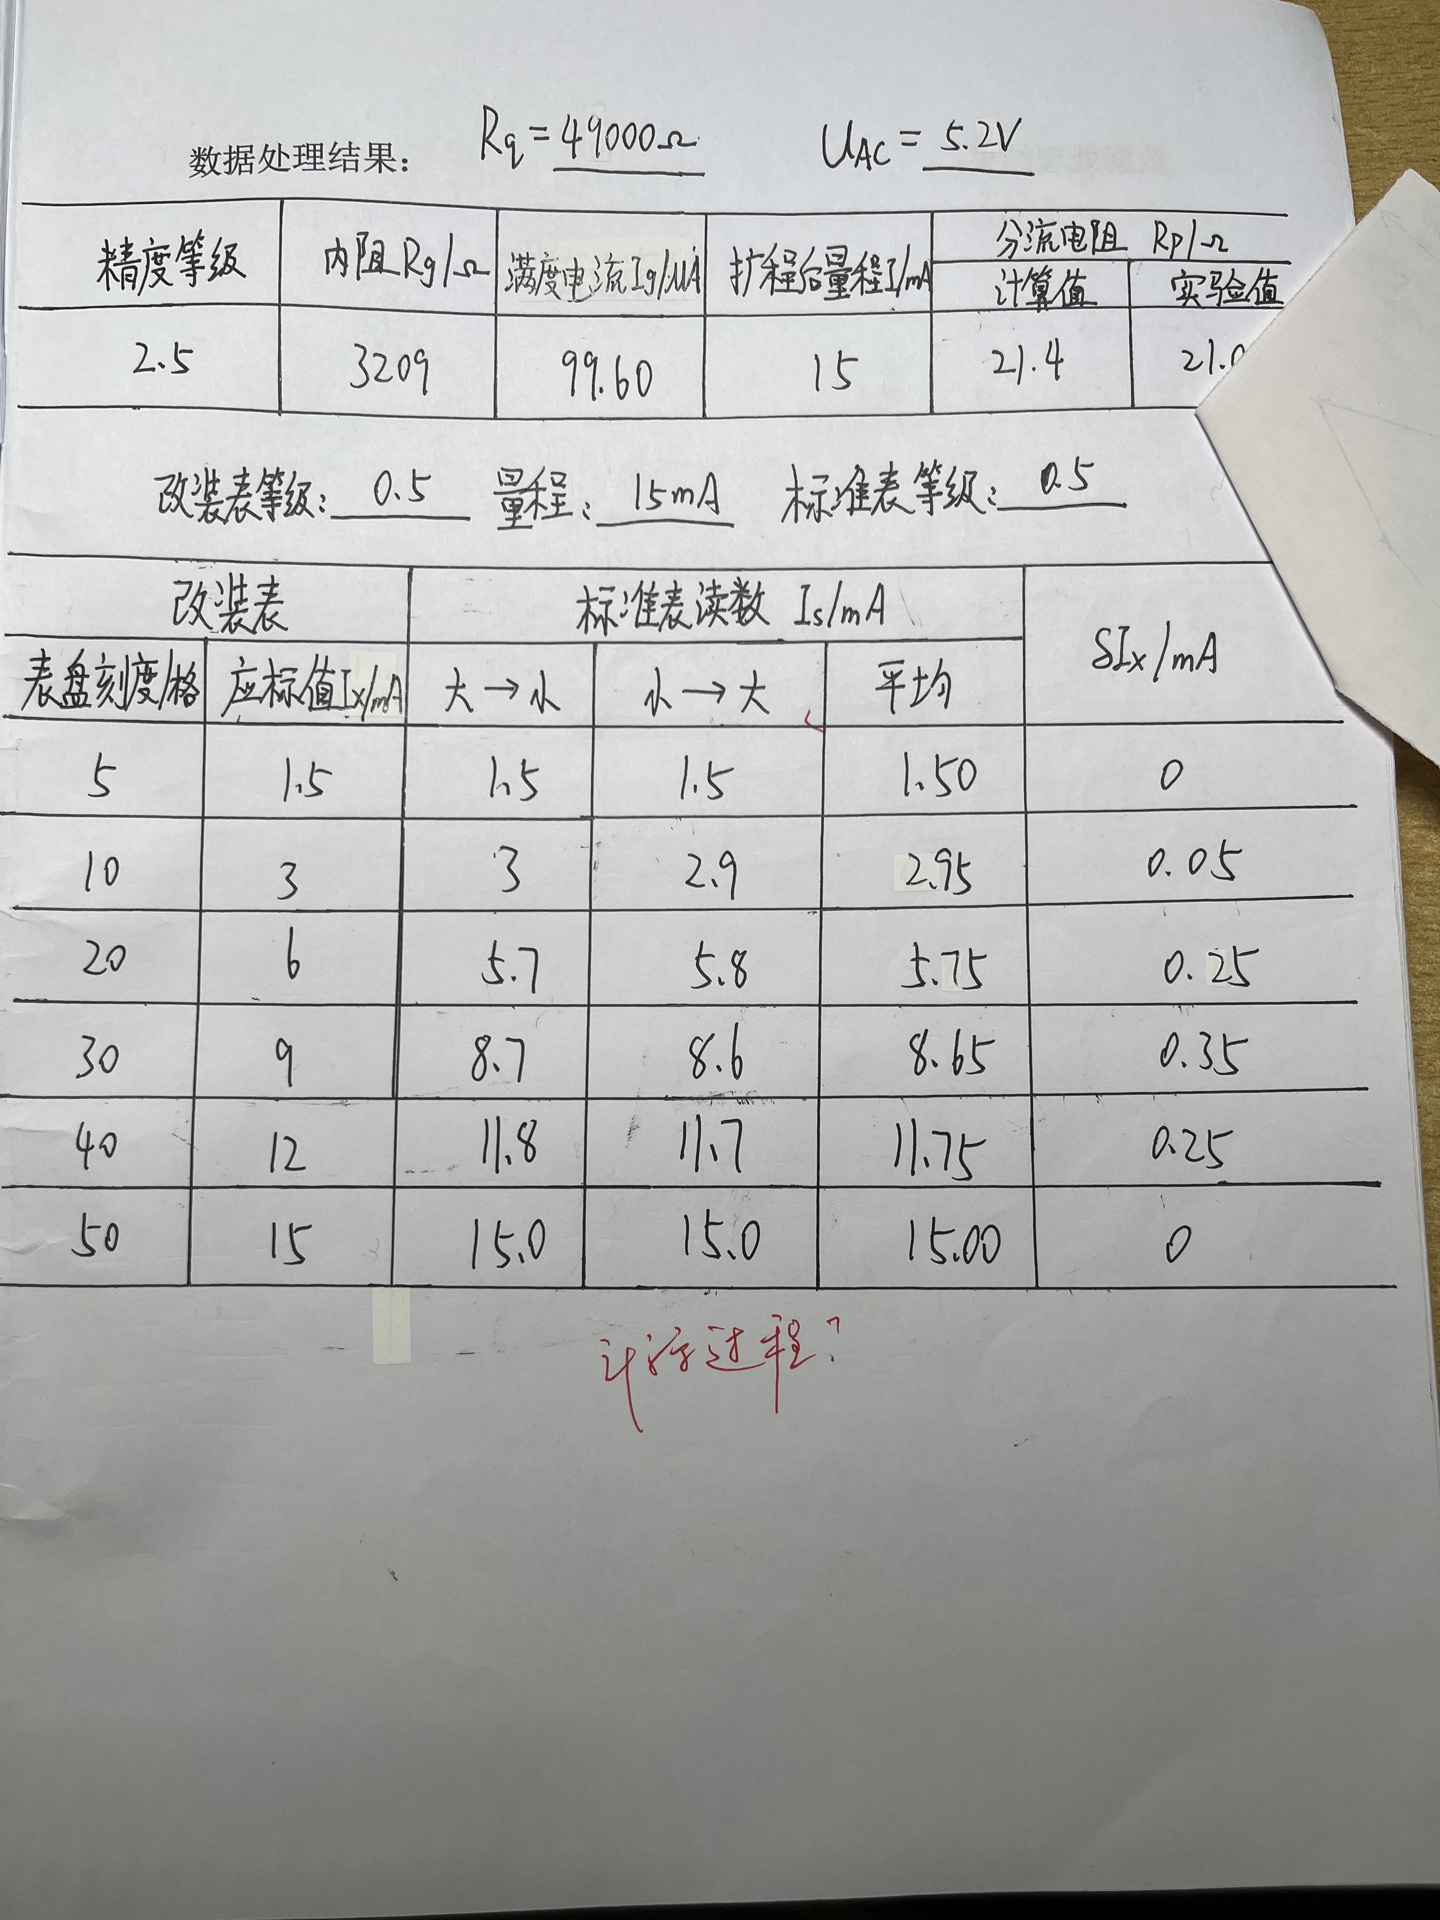 数据处理结果： Rq = 49000Ω UAC = 5.2V
精度等级 内阻Rg/Ω 满度电流Ig/μA 扩程后量程I/mA 分流电阻 Rp/Ω
计算值 实验值
2.5 3209 99.60 15 21.4 21.0
改装表等级: 0.5 量程: 15mA 标准表等级: 0.5
改装表 标准表读数 Is/mA δIx/mA
表盘刻度/格 应标值Ix/mA 大→小 小→大 平均
5 1.5 1.5 1.5 1.50 0
10 3 3 2.9 2.95 0.05
20 6 5.7 5.8 5.75 0.25
30 9 8.7 8.6 8.65 0.35
40 12 11.8 11.7 11.75 0.25
50 15 15.0 15.0 15.00 0
计算过程？